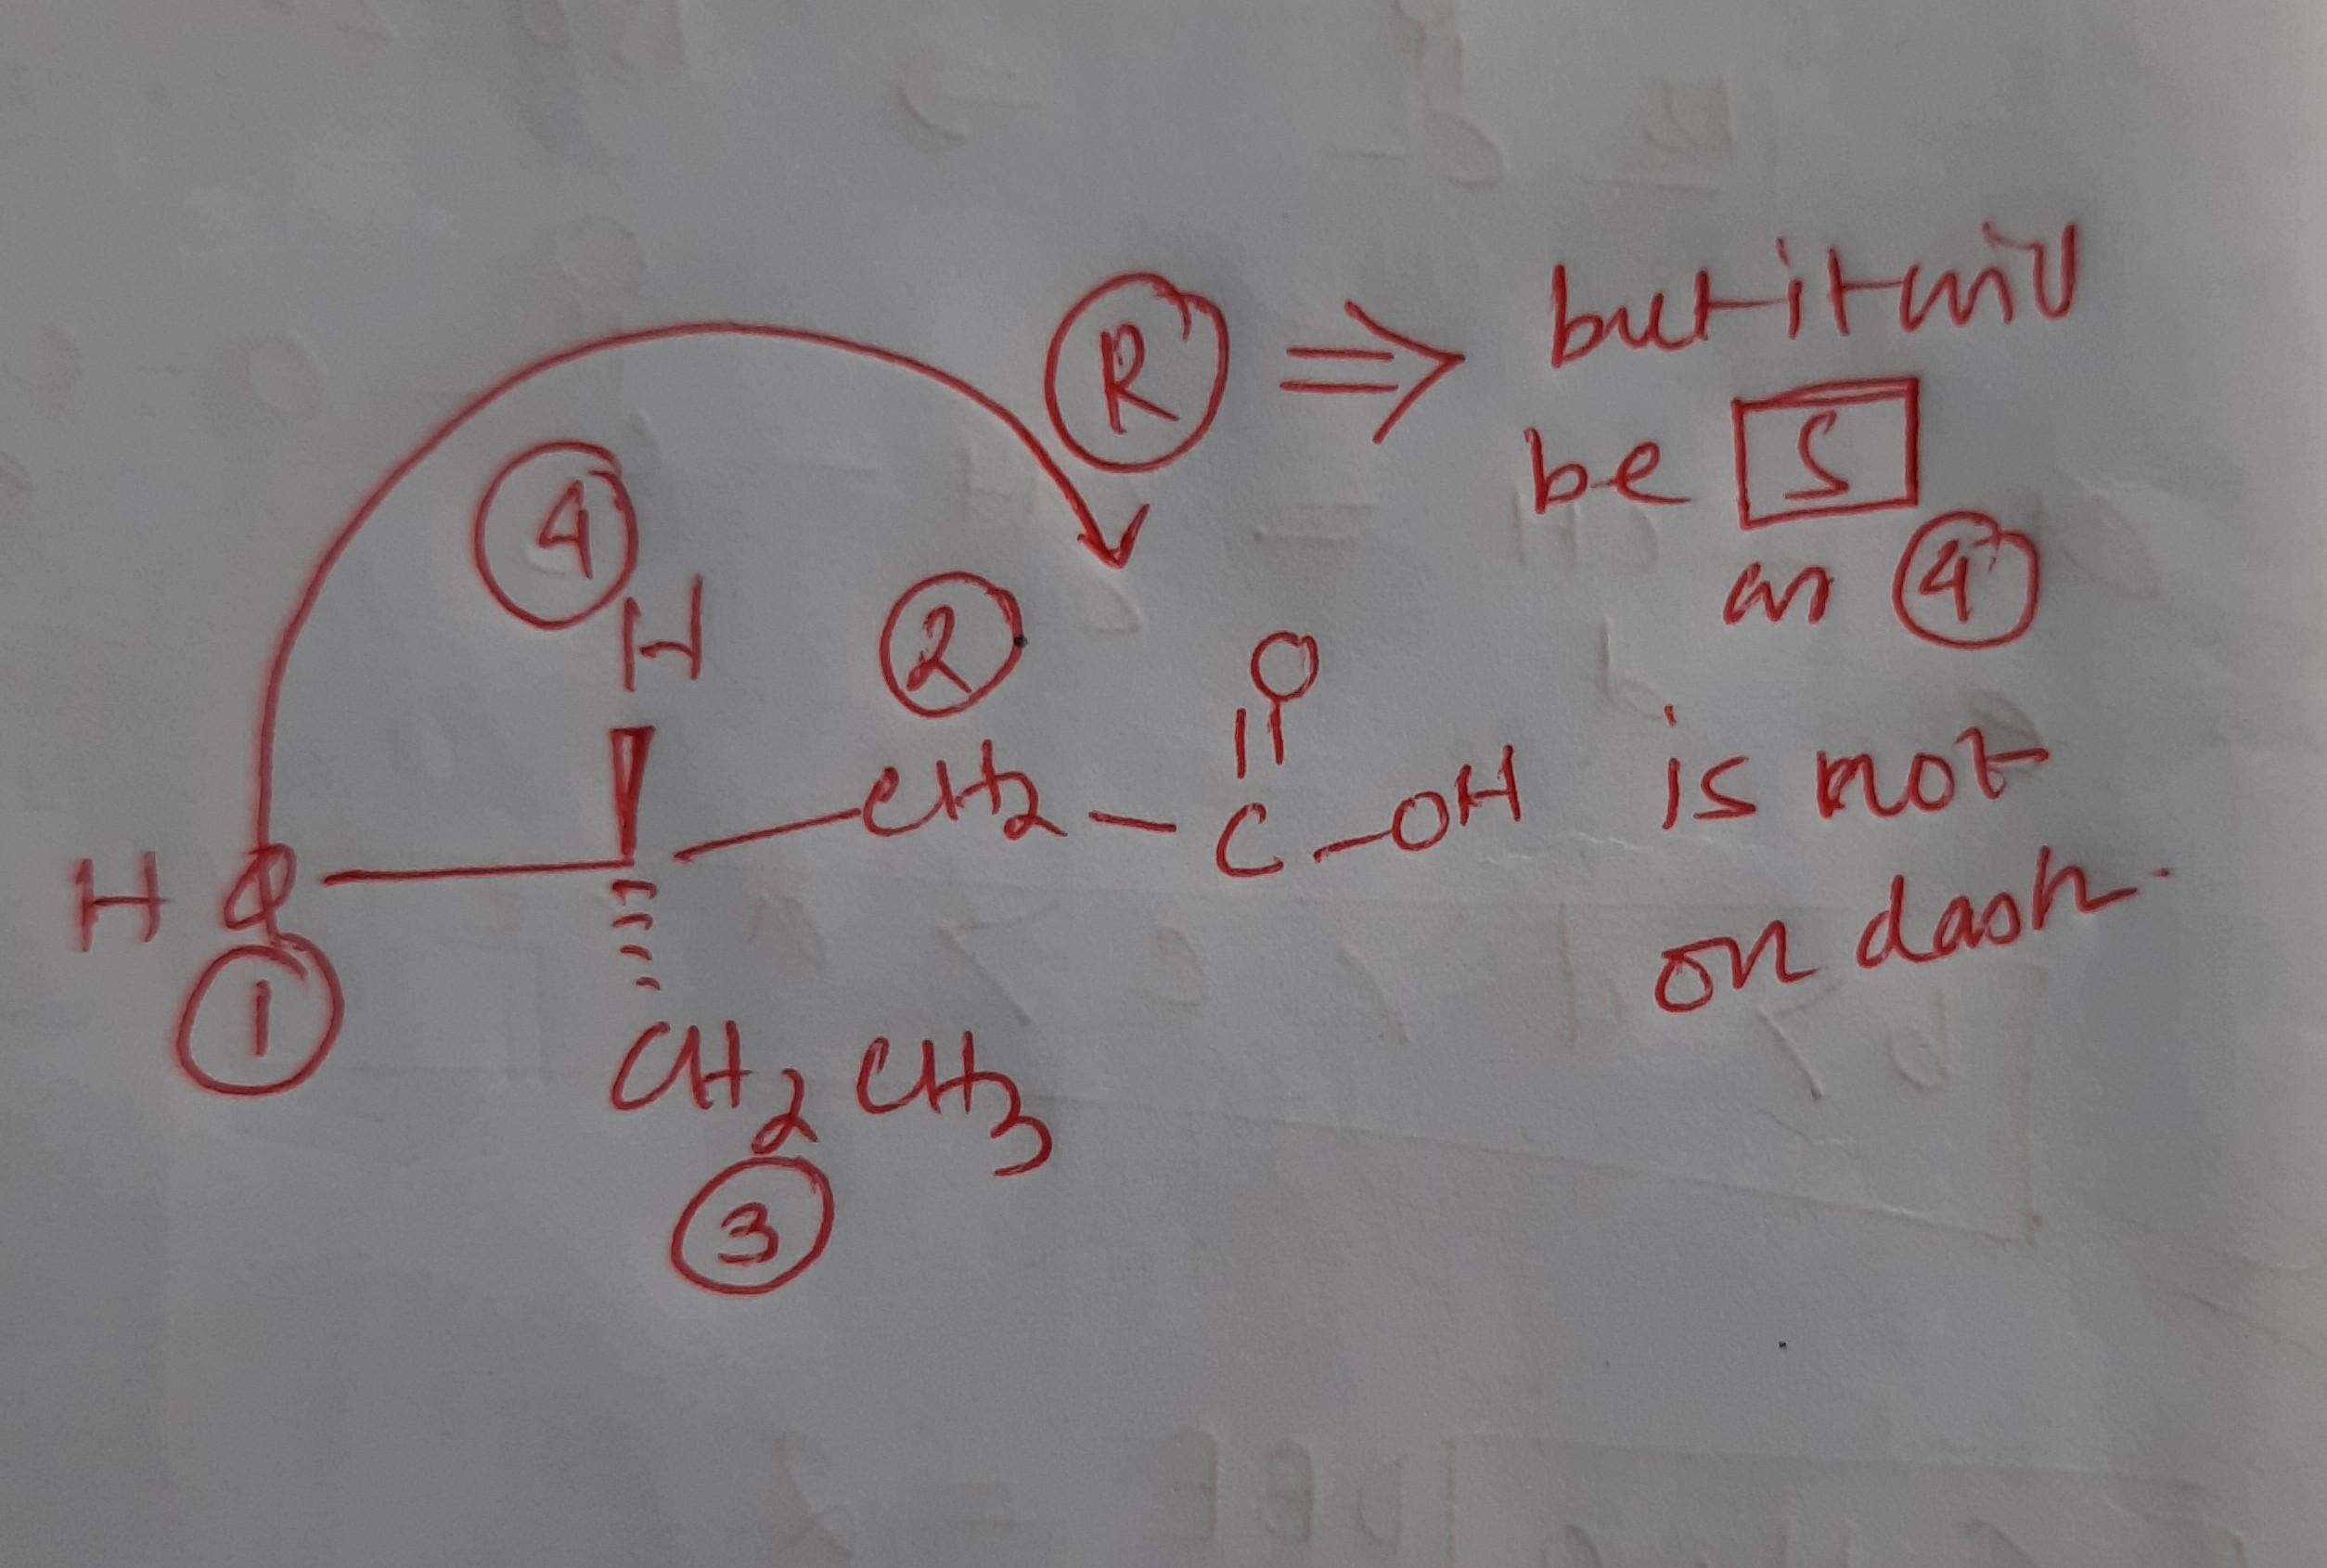 R ⇒ but it will
be S
as 4
is not
on dash.
4
H 2
O
HO CH2 - C - OH
1
CH2 CH3
3